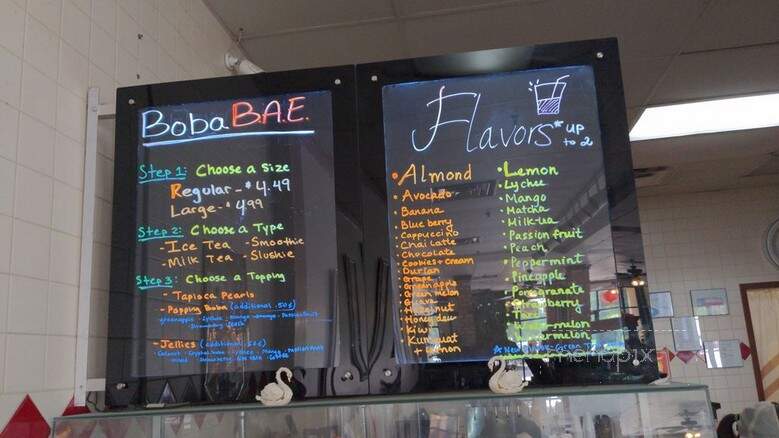 Boba B.A.E.
Step 1: Choose a Size
Regular - $4.49
Large - $4.99
Step 2: Choose a Type
- Ice Tea - Smoothie
- Milk Tea - Slushie
Step 3: Choose a Topping
- Tapioca Pearls
- Popping Boba (additional .50¢)
- Jellies (additional
Flavors *up
to 2
• Almond
• Avocado
• Banana
• Blueberry
• Cappuccino
• Chai Latte
• Chocolate
• Cookies + Cream
• Durian
• Grape
• Green apple
• Green melon
• Guava
• Hazelnut
• Honeydew
• Kiwi
• Kumquat
+ Lemon
• Lemon
• Lychee
• Mango
• Matcha
• Milk-tea
• Passion fruit
• Peach
• Peppermint
• Pineapple
• Pomegranate
• Strawberry
• Taro
menupix